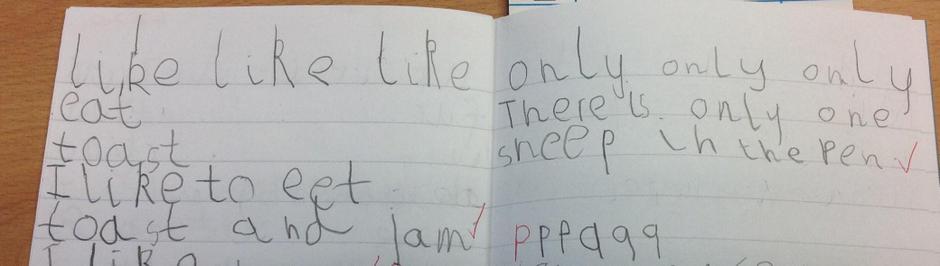 like like like
eat
toast
I like to eet
toast and jam
I like
only only only
There is only one
sheep in the pen
pppqqq